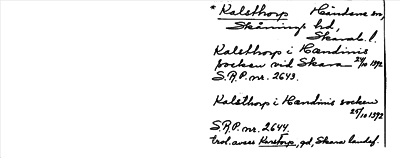 * Kalsthorp Händene sn,
Skånings hd,
Skarab. l.
Kalsthorp i Hændinis
socken vid Skara 24/10 1392
S.R.P. nr. 2643.
Kalsthorp i Hændinis socken
25/10 1392
S.R.P. nr. 2644.
trol. avses Karstorp, gd, Skara landsf.